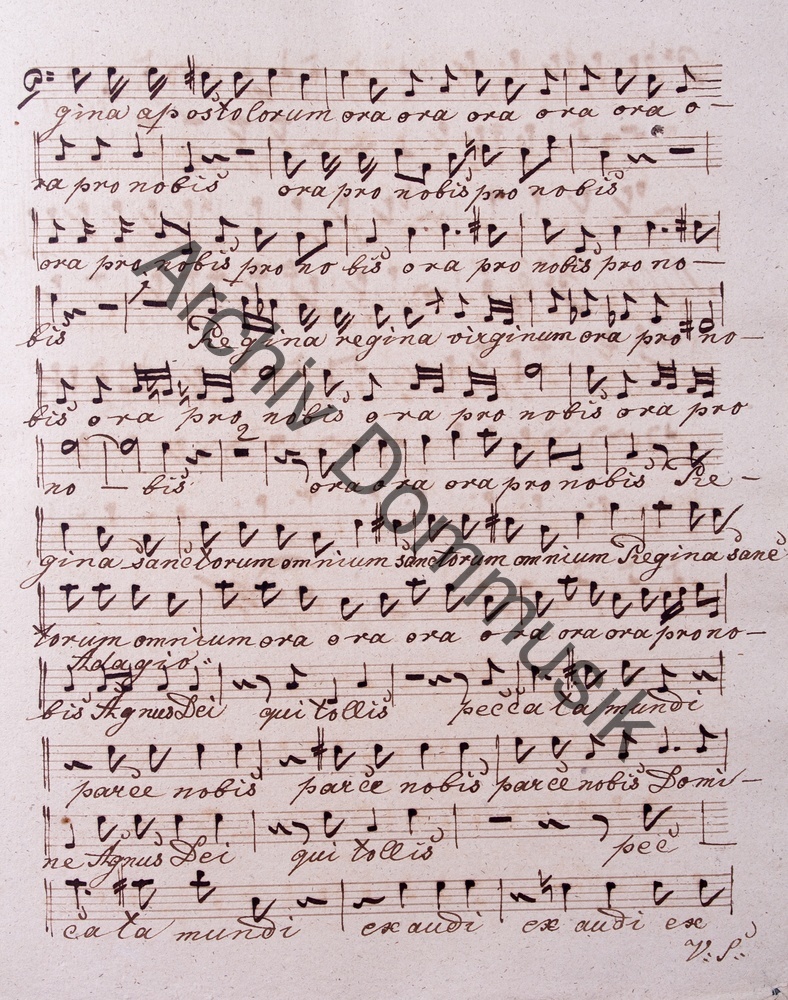 gina apostolorum ora ora ora ora ora o-
ra pro nobis ora pro nobis pro nobis
ora pro nobis pro no bis ora pro nobis pro no-
bis Regina regina virginum ora pro no-
bis ora pro nobis ora pro nobis ora pro
2
no - bis ora ora ora pro nobis Re-
gina sanctorum omnium sanctorum omnium Regina sanc
torum omnium ora ora ora ora ora ora pro no-
Adagio
bis Agnus Dei qui tollis pecca ta mundi
parce nobis parce nobis parce nobis Domi-
ne Agnus Dei qui tollis pec
ca ta mundi ex audi ex audi ex
V: S:
Archiv Dommusik